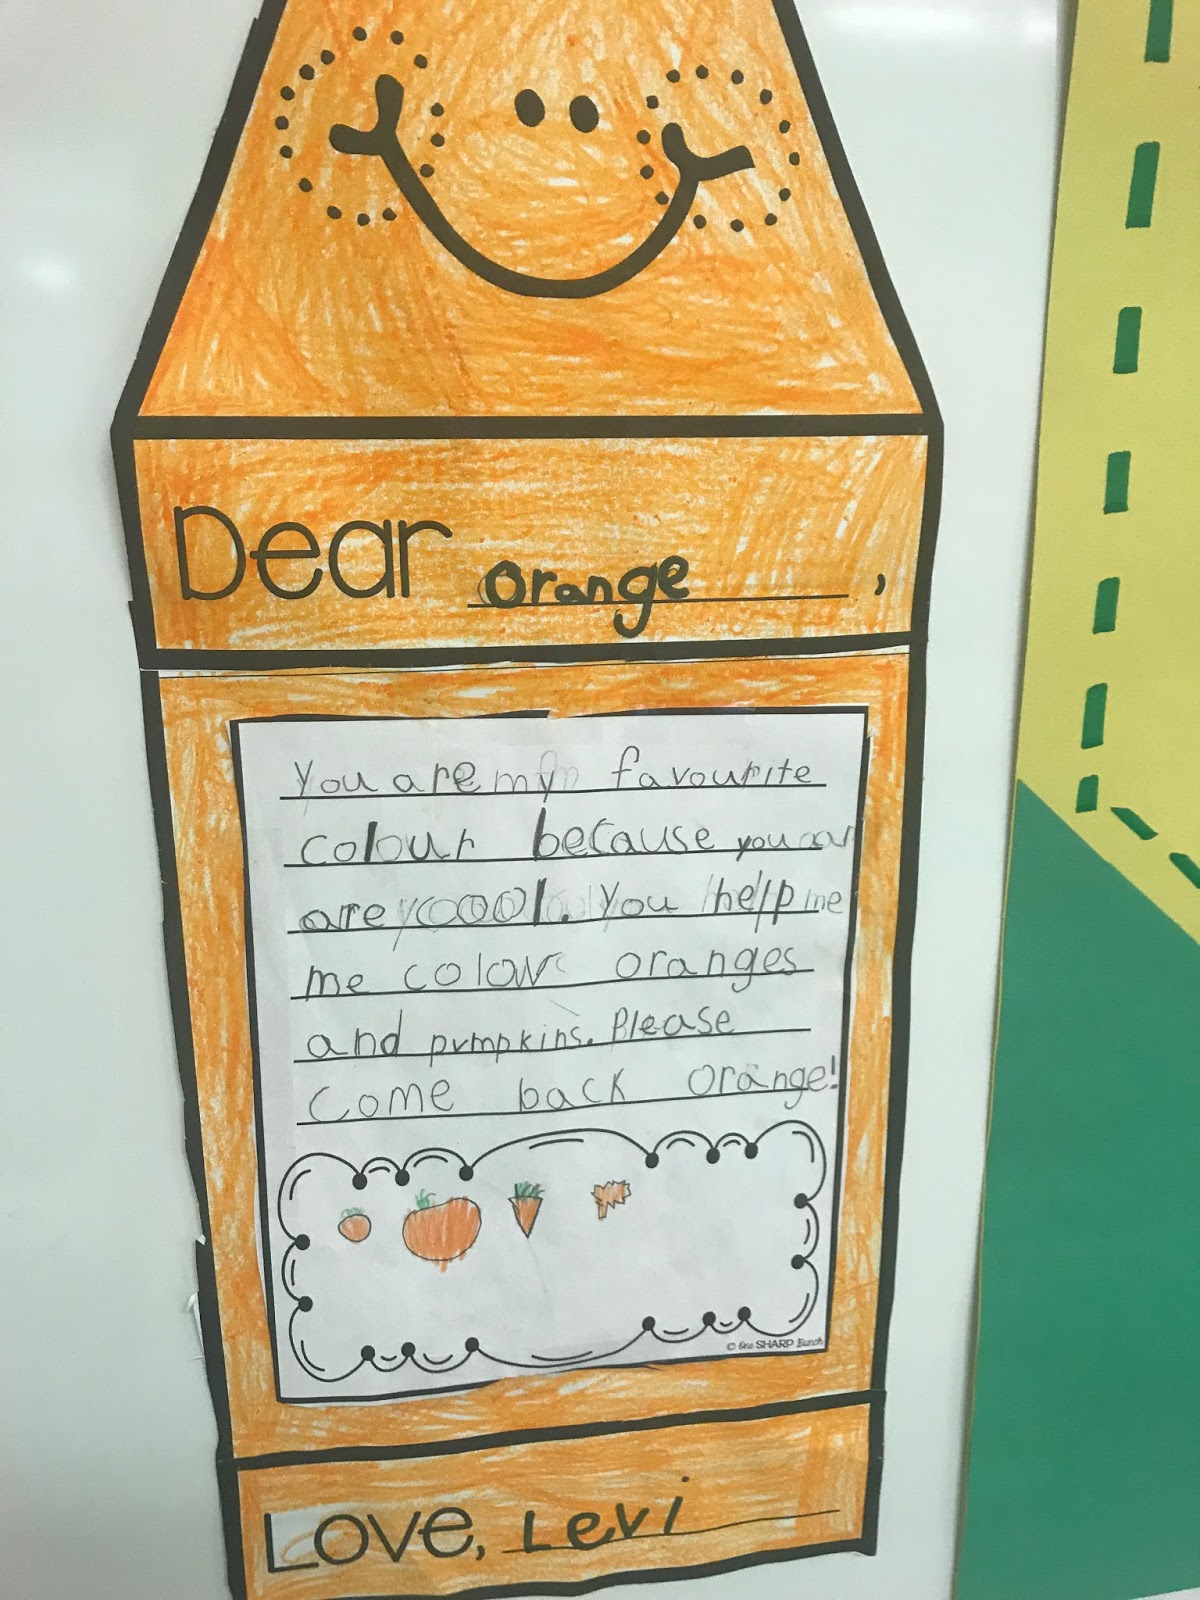 Dear orange,
You are my favourite
colour because you
are cool. You help me
me colour oranges
and pumpkins. Please
come back orange!
© One SHARP Bunch
Love, Levi